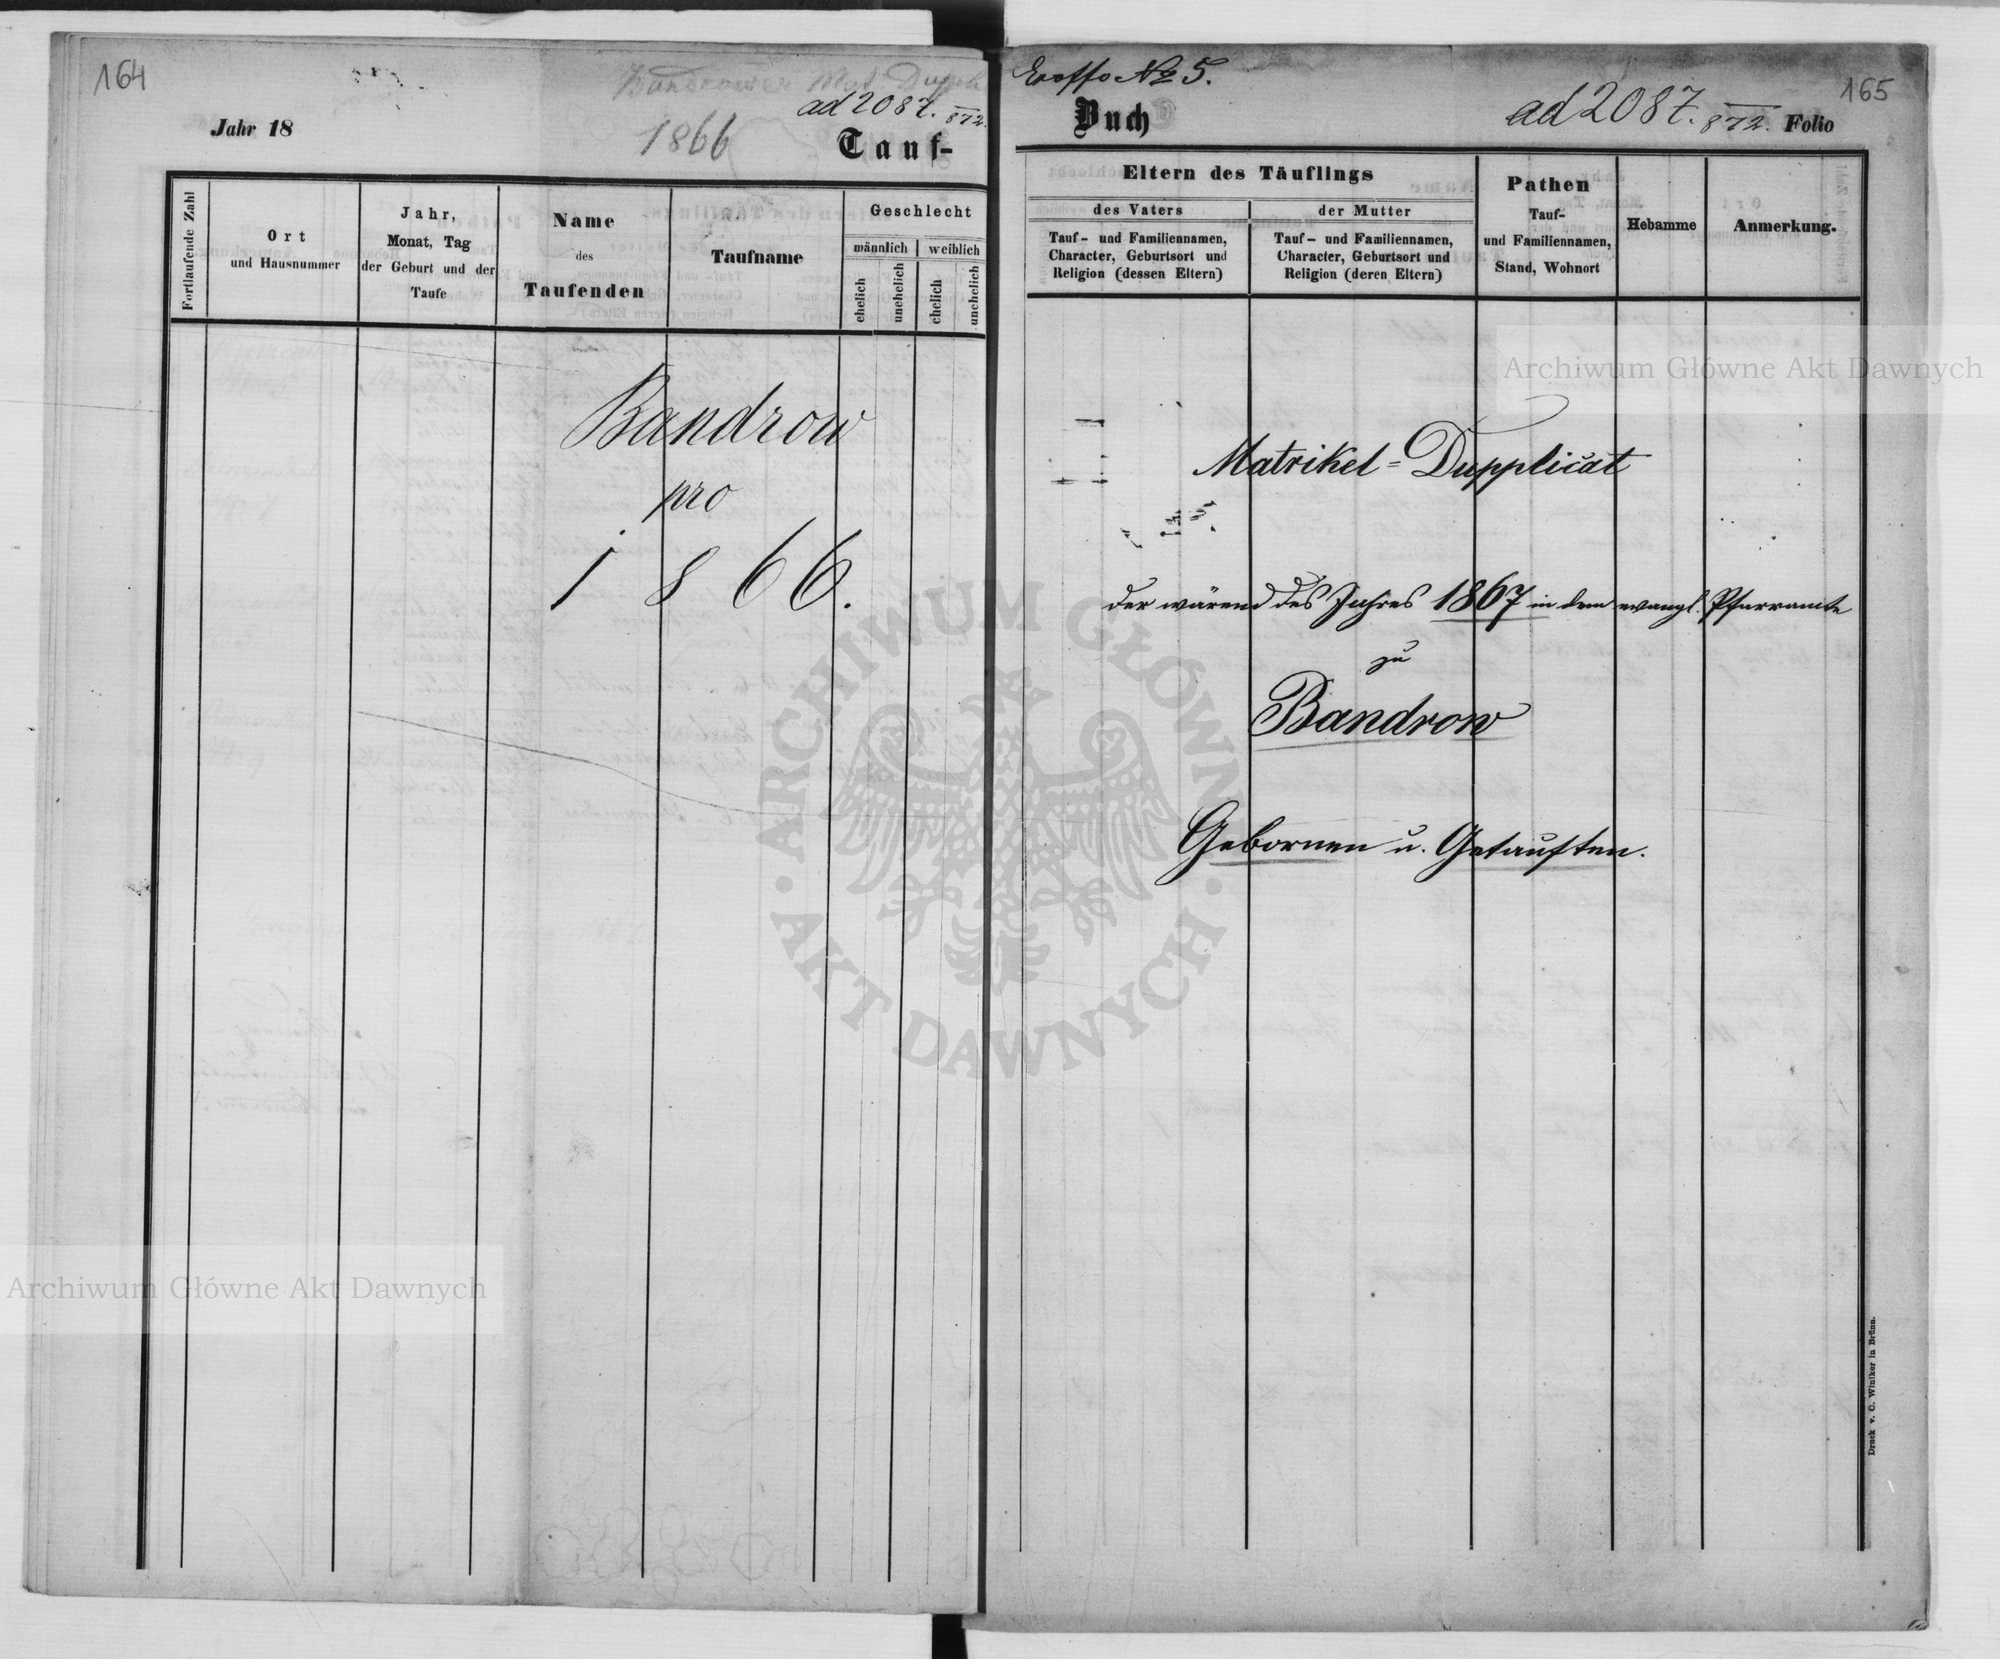 164
Bandrower Mat. Dupl
ad 2087. 872.
Jahr 18
1866
Tauf-
Fortlaufende Zahl
Ort
und Hausnummer
Jahr,
Monat, Tag
der Geburt und der
Taufe
Name
des
Taufenden
Taufname
Geschlecht
männlich
weiblich
ehelich
unehelich
ehelich
unehelich
Bandrow
pro
1866.
No 5.
165
Buch
ad 2087. 872. Folio
Eltern des Täuflings
des Vaters
Tauf- und Familiennamen,
Character, Geburtsort und
Religion (dessen Eltern)
der Mutter
Tauf- und Familiennamen,
Character, Geburtsort und
Religion (deren Eltern)
Pathen
Tauf-
und Familiennamen,
Stand, Wohnort
Hebamme
Anmerkung.
Matrikel=Dupplicat
der wärend des Jahres 1867 in dem evangl. Pfarramte
zu
Bandrow
Gebornen u. Getauften.
Druck v. C. Winiker in Brünn.
Archiwum Główne Akt Dawnych
Archiwum Główne Akt Dawnych
ARCHIWUM GŁÓWNE · AKT DAWNYCH ·